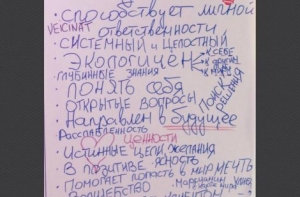 • СПОСОБСТВУЕТ ЛИЧНОЙ
ОТВЕТСТВЕННОСТИ
• СИСТЕМНЫЙ И ЦЕЛОСТНЫЙ
• ЭКОЛОГИЧЕН К СЕБЕ
К ДРУГИМ
К МИРУ
ГЛУБИННЫЕ ЗНАНИЯ
• ПОНЯТЬ СЕБЯ
• ОТКРЫТЫЕ ВОПРОСЫ
ПОИСК РЕШЕНИЯ
• НАПРАВЛЕН В БУДУЩЕЕ
РАССЛАБЛЕННОСТЬ
ЦЕННОСТИ
• ИСТИННЫЕ ЦЕЛИ, ЖЕЛАНИЯ
• В ПОЗИТИВЕ ЯСНОСТЬ
• ПОМОГАЕТ ПОПАСТЬ В МИР МЕЧТЫ
• ВОЛШЕБСТВО